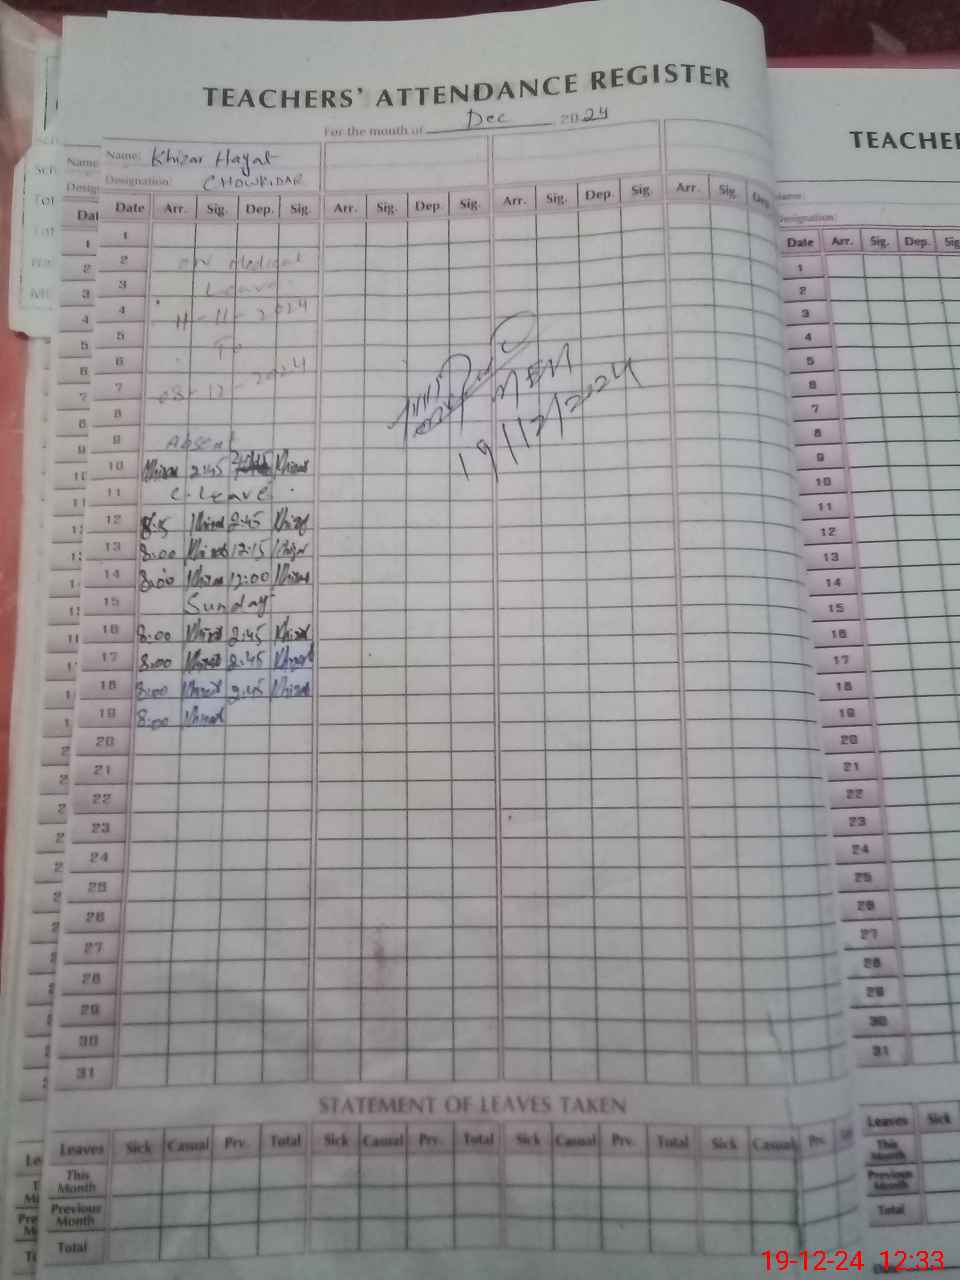 TEACHERS' ATTENDANCE REGISTER
For the month of Dec 2024
Name: Khizar Hayat
Designation: CHOWKIDAR
Date Arr. Sig. Dep. Sig. Arr. Sig. Dep. Sig. Arr. Sig. Dep. Sig. Arr. Sig. Dep.
1
2 on Medical
3 Leave
4 11-11-2024
5 To
6
7 08-12-2024
8
9 Absent
10 Khizar 2:45 Khizar
11 C-Leave
12 8:15 Khizar 2:45 Khizar
13 8:00 Khizar 12:15 Khizar
14 8:00 Khizar 12:00 Khizar
15 Sunday
16 8:00 Khizar 2:45 Khizar
17 8:00 Khizar 2:45 Khizar
18 8:00 Khizar 2:45 Khizar
19 8:00 Khizar
20
21
22
23
24
25
26
27
28
29
30
31
19/12/2024
STATEMENT OF LEAVES TAKEN
Leaves Sick Casual Prv. Total Sick Casual Prv. Total Sick Casual Prv. Total Sick Casual Prv.
This Month
Previous Month
Total
TEACHE
Name:
Designation:
Date Arr. Sig. Dep. Sig
1
2
3
4
5
6
7
8
9
10
11
12
13
14
15
16
17
18
19
20
21
22
23
24
25
26
27
28
29
30
31
Leaves Sick
This Month
Previous Month
Total
19-12-24 12:33